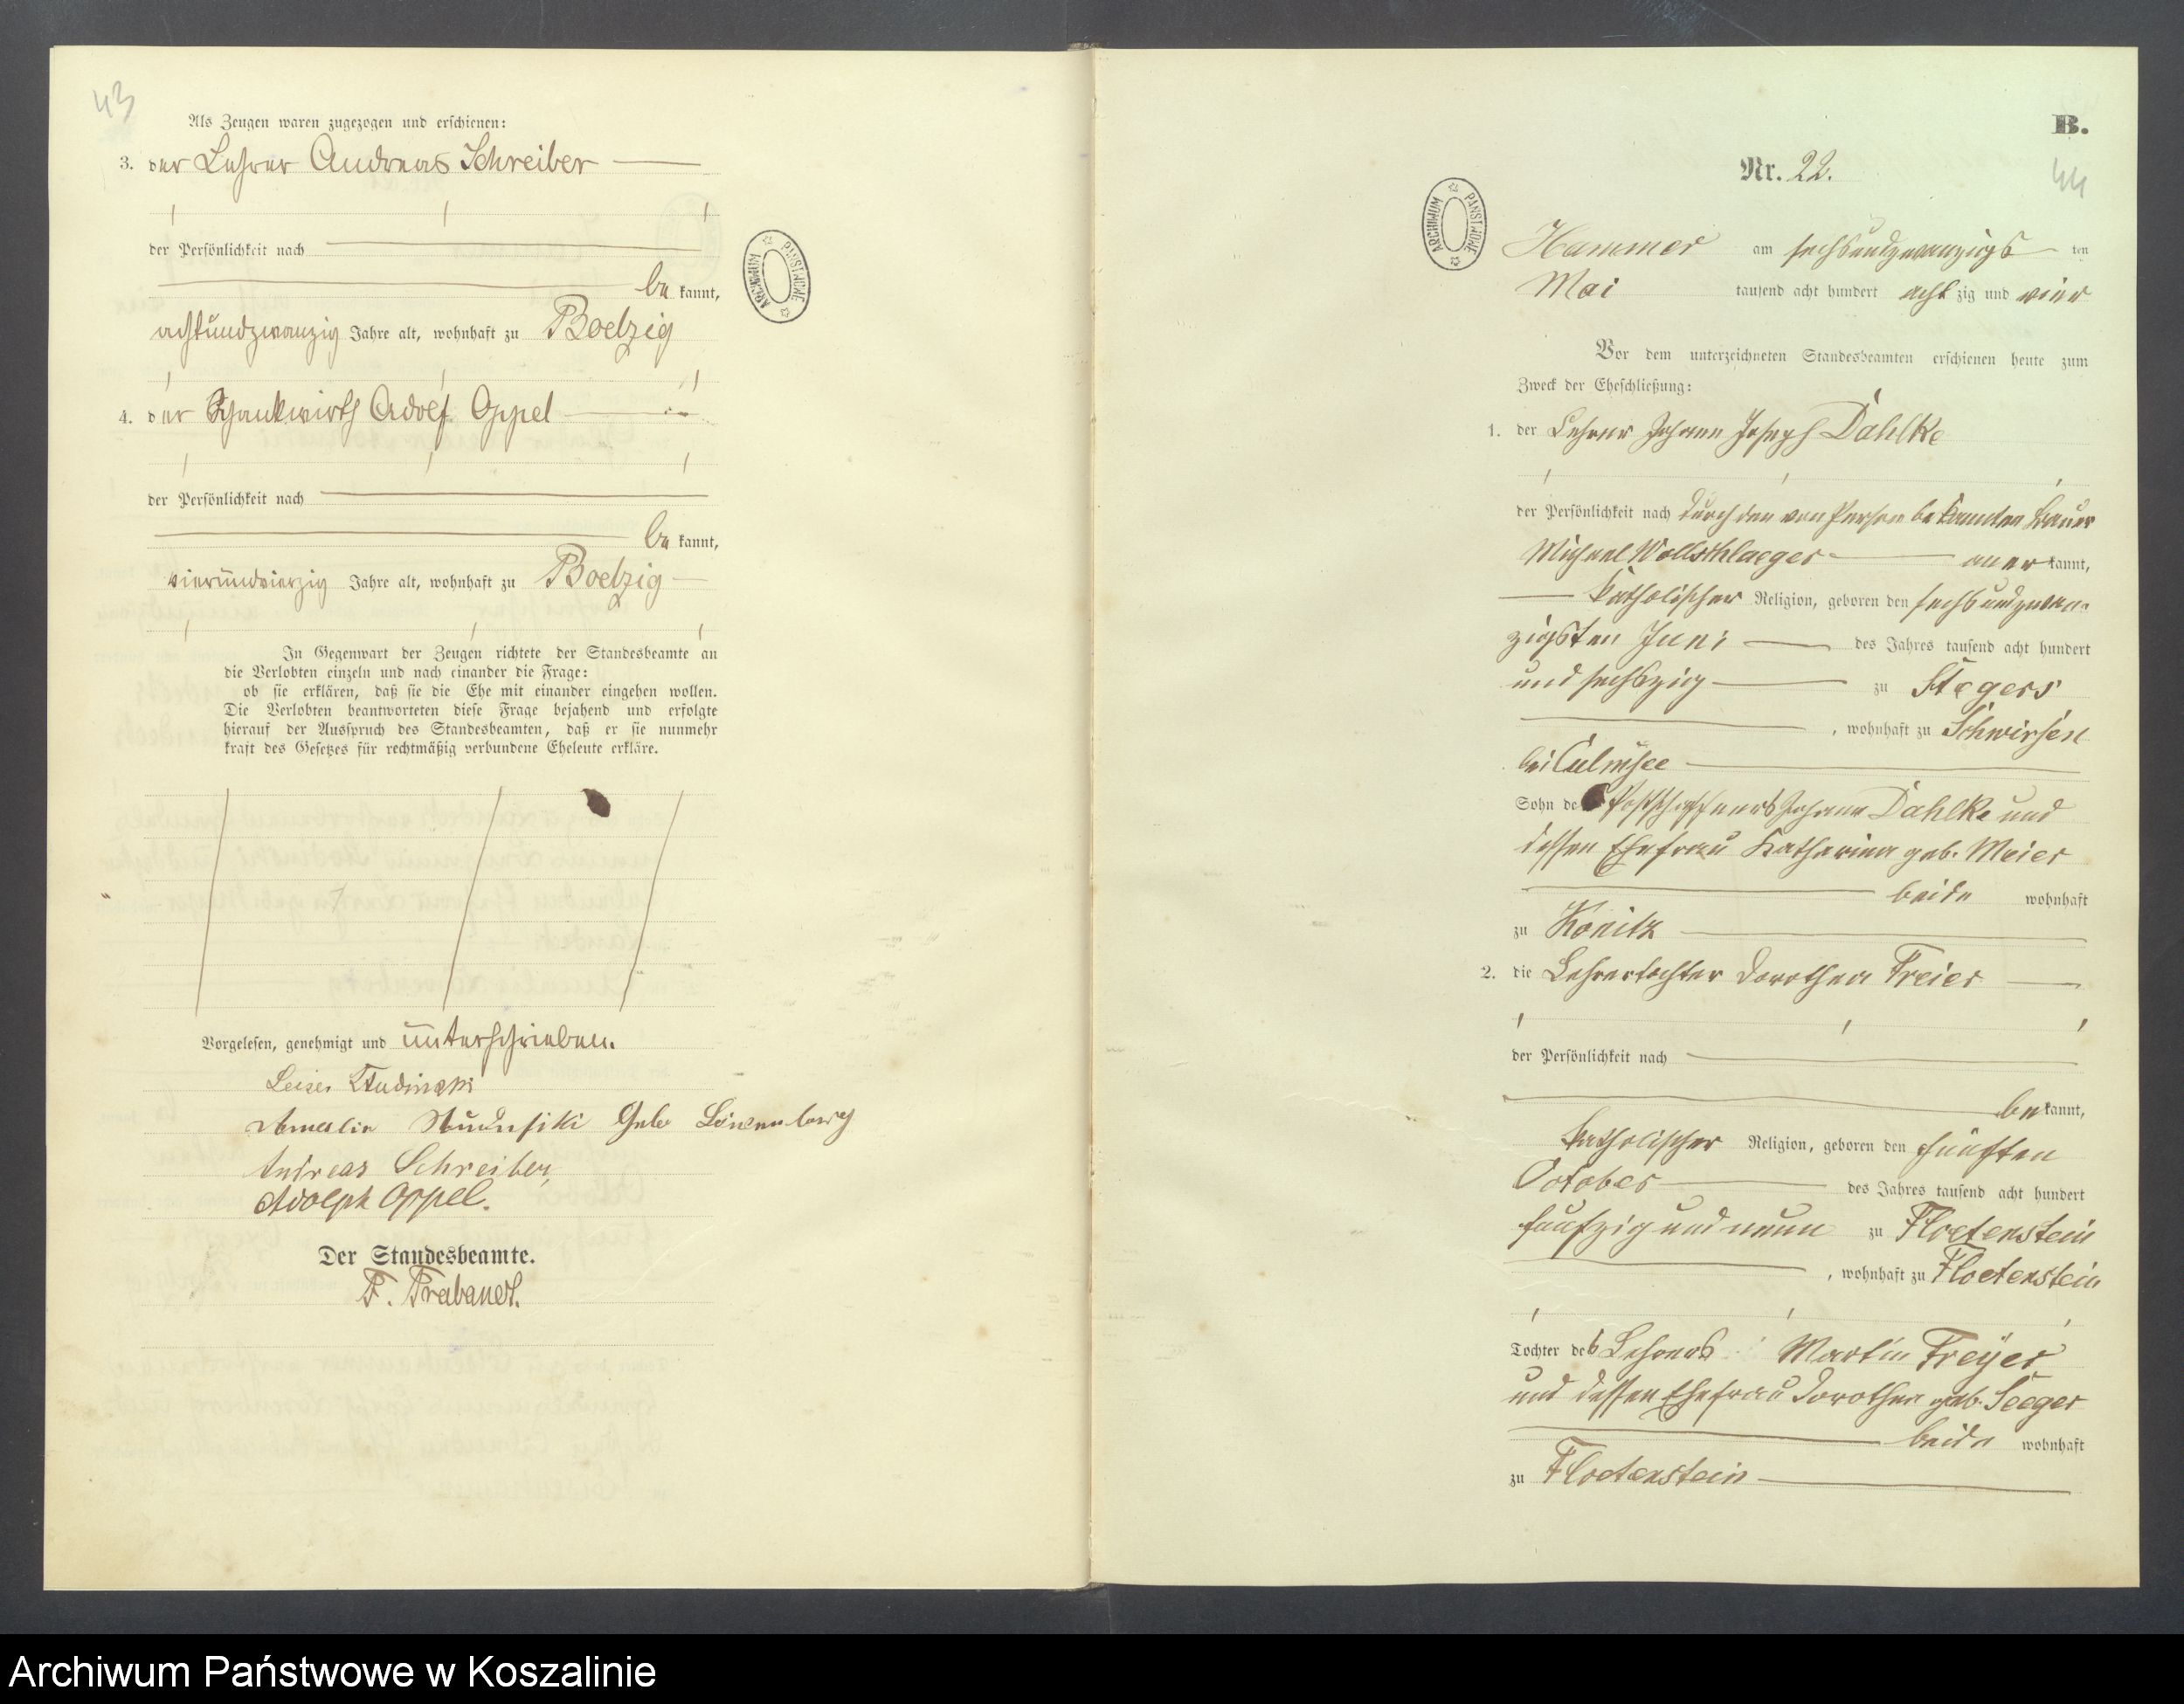 43
Als Zeugen waren zugezogen und erschienen:
3. der Lehrer Andreas Schreiber
der Persönlichkeit nach
be kannt,
achtundzwanzig Jahre alt, wohnhaft zu Boelzig
4. der Schankwirth Adolf Oppel
der Persönlichkeit nach
be kannt,
vierundvierzig Jahre alt, wohnhaft zu Boelzig
In Gegenwart der Zeugen richtete der Standesbeamte an
die Verlobten einzeln und nach einander die Frage:
ob sie erklären, daß sie die Ehe mit einander eingehen wollen.
Die Verlobten beantworteten diese Frage bejahend und erfolgte
hierauf der Ausspruch des Standesbeamten, daß er sie nunmehr
kraft des Gesetzes für rechtmäßig verbundene Eheleute erkläre.
Vorgelesen, genehmigt und unterschrieben.
Andreas Schreiber,
Adolph Oppel.
Der Standesbeamte.
ARCHIWUM PAŃSTWOWE
B.
Nr. 22.
44
ARCHIWUM PAŃSTWOWE
Hammer am sechsundzwanzigs ten
Mai tausend acht hundert acht zig und vier
Vor dem unterzeichneten Standesbeamten erschienen heute zum
Zweck der Eheschließung:
1. der Lehrer Johann Joseph Dahlke
der Persönlichkeit nach durch den von Person bekannten Bauer
Michael Wollschlaeger aner kannt,
katholischer Religion, geboren den sechsundzwan-
zigsten Juni des Jahres tausend acht hundert
und sechszig zu Stegers
, wohnhaft zu Schwirsen
bei Culmsee
Sohn des Postschaffners Johann Dahlke und
dessen Ehefrau Katharina geb. Meier
beide wohnhaft
zu Konitz
2. die Lehrertochter Dorothea Freier
der Persönlichkeit nach
be kannt,
katholischer Religion, geboren den fünften
October des Jahres tausend acht hundert
fünfzig und neun zu Floetenstein
, wohnhaft zu Floetenstein
Tochter des Lehrers Martin Freyer
und dessen Ehefrau Dorothea geb. Seeger
beide wohnhaft
zu Floetenstein
Archiwum Państwowe w Koszalinie